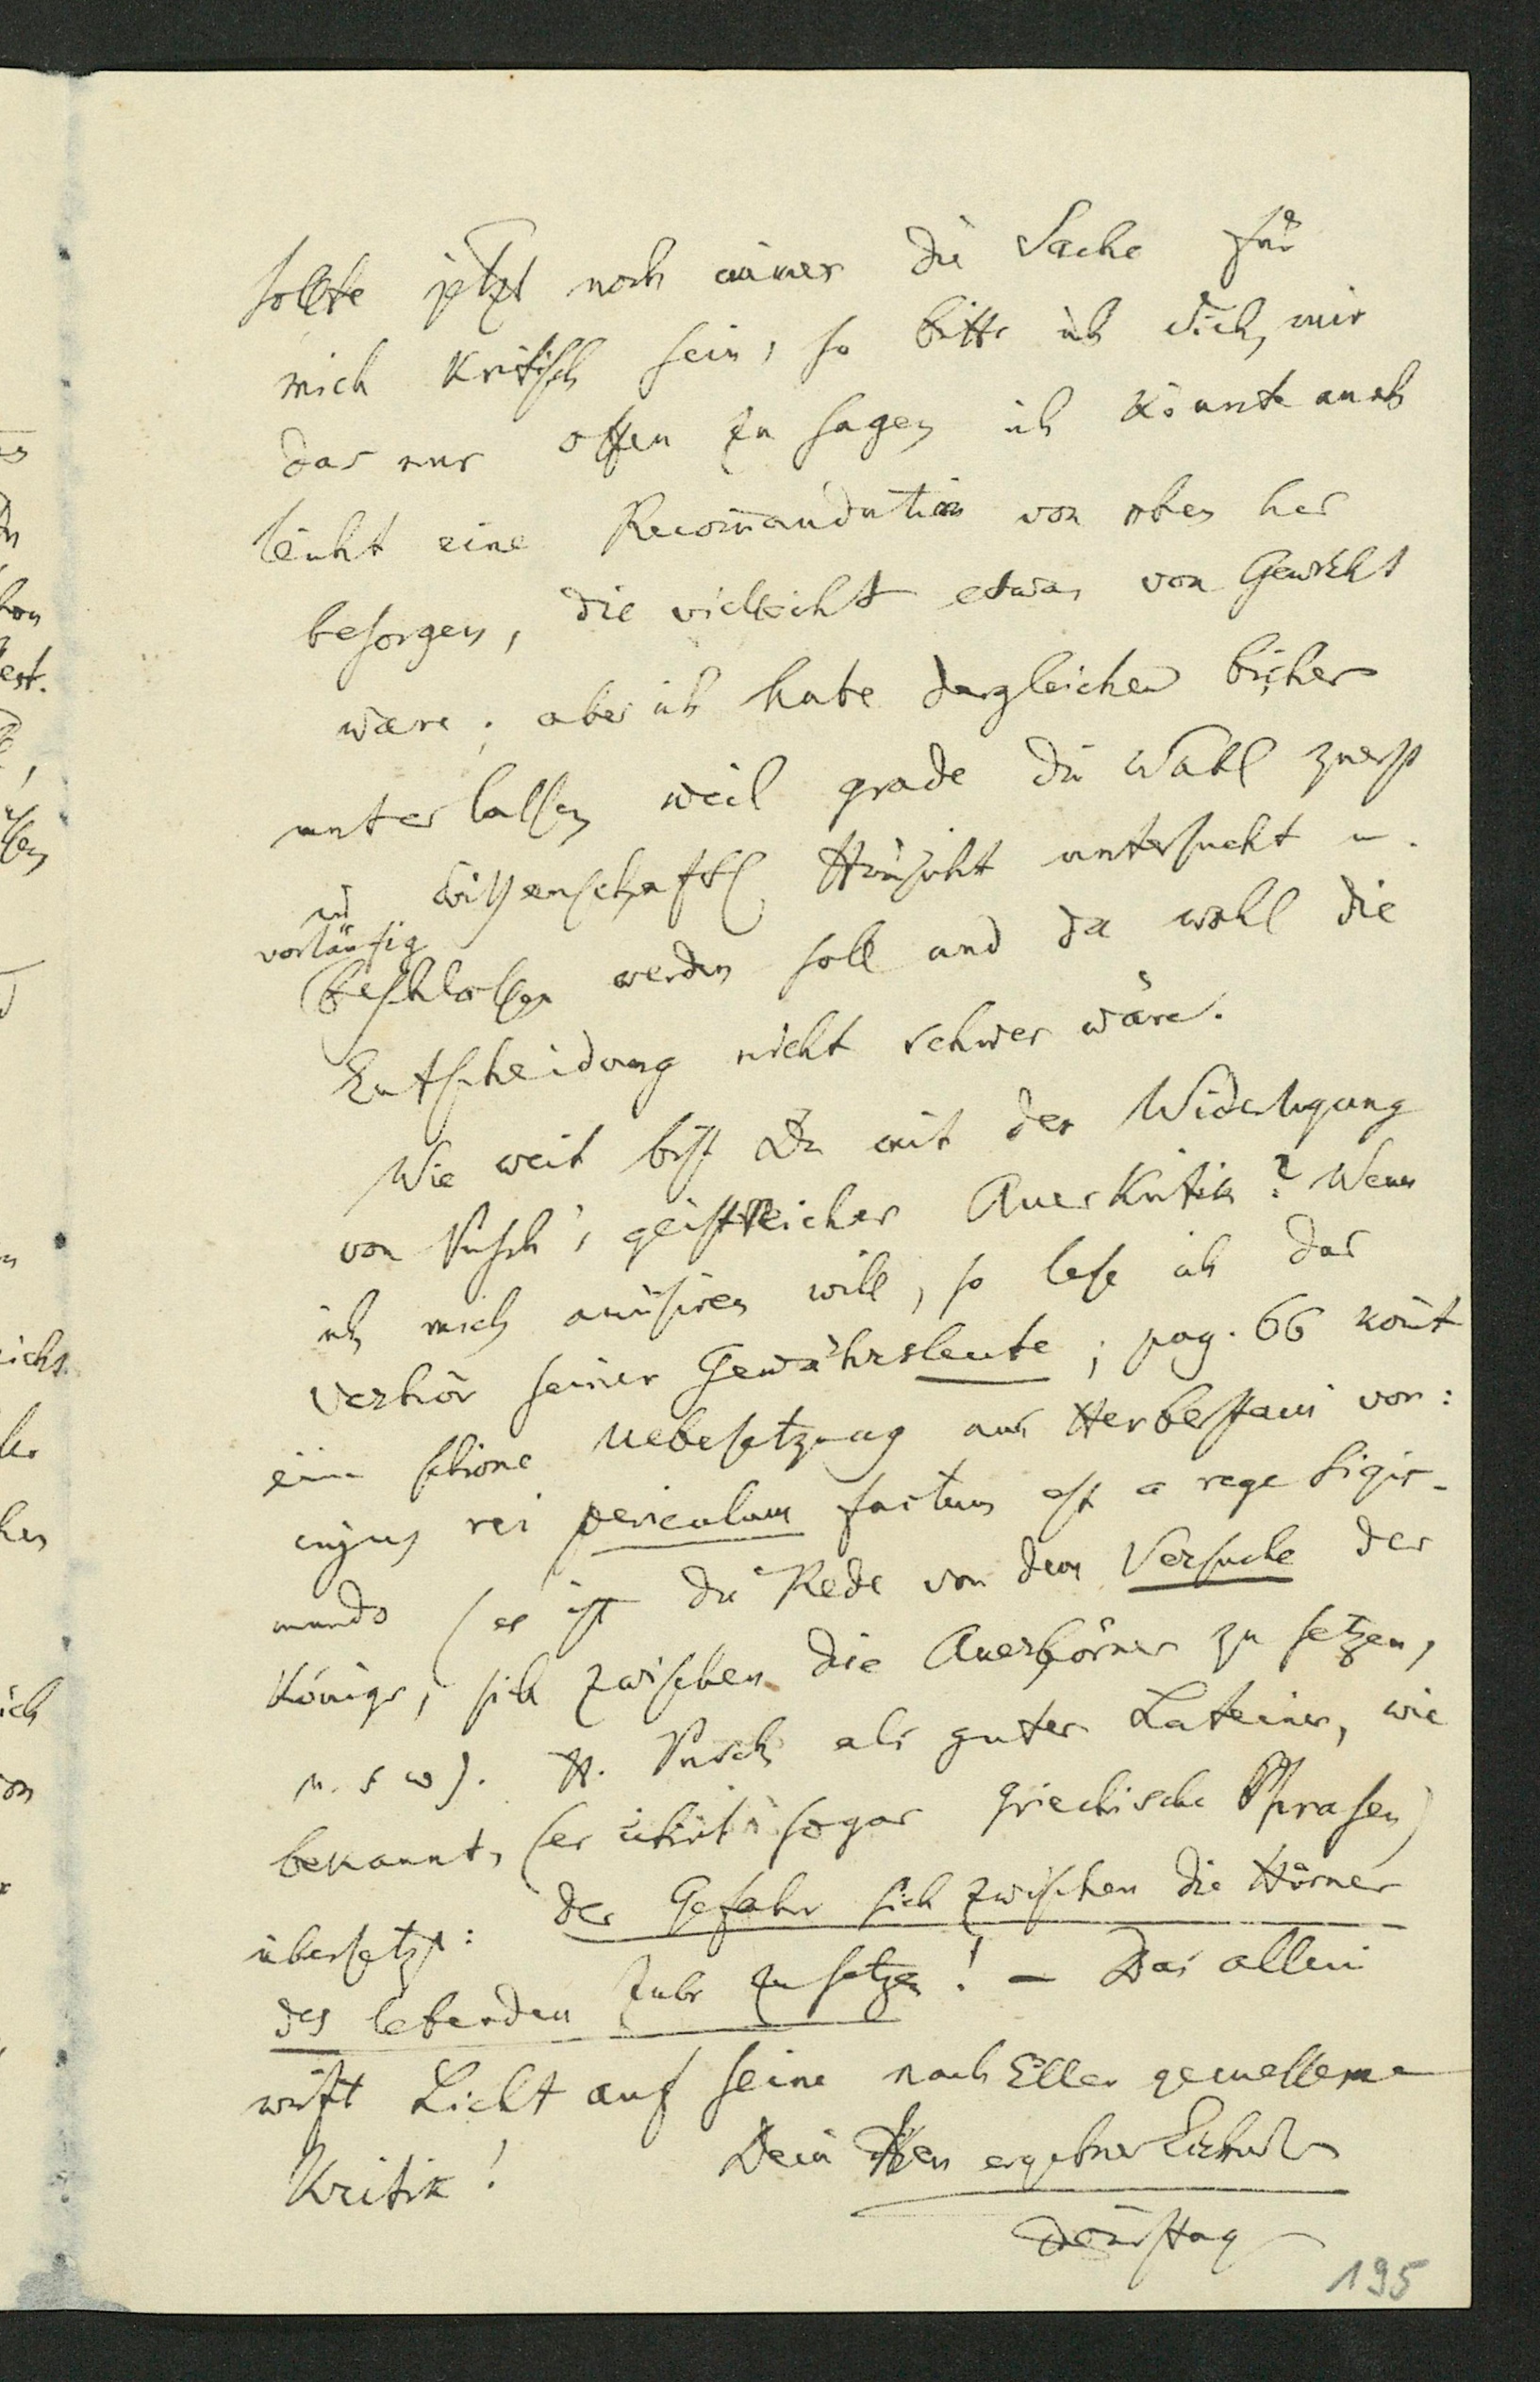 sollte jetzt noch im̄er die Sache für
mich kritisch sein, so bitte ich Dich, mir
das nur offen zu sagen ich könnte auch
leicht eine Recom̄andation von oben her
besorgen, die vielleicht etwas von Gewicht
wäre; aber ich habe dergleichen bisher
unterlassen weil grade die Wahl zuerst
in wissenschaftl Hinsicht untersucht u.
und vorläufig
beschlossen werden soll und da wohl die
Entscheidung nicht schwer wäre.
Wie weit bist Du mit der Widerlegung
von Pusch's geistreicher Auer Kritik? Wenn
ich mich amüsiren will, so lese ich das
Verhör seiner Gewährsleute; pag. 66 kom̄t
eine schöne Uebersetzung aus Herberstain vor:
cujus rei periculum factum est a rege Sigis-
mundo (es ist die Rede von dem Versuche des
Königs, sich zwischen die Auerhörner zu setzen,
u. s w). H. Pusch als guter Lateiner, wie
bekannt, (er citirt sogar griechische Phrasen)
übersetzt: der Gefahr sich zwischen die Hörner
des lebenden Zubr zu setzen! – Das allein
wirft Licht auf seine nach Ellen gemessene
Kritik!
Dein ergebner Eichwald
Dienstag
195